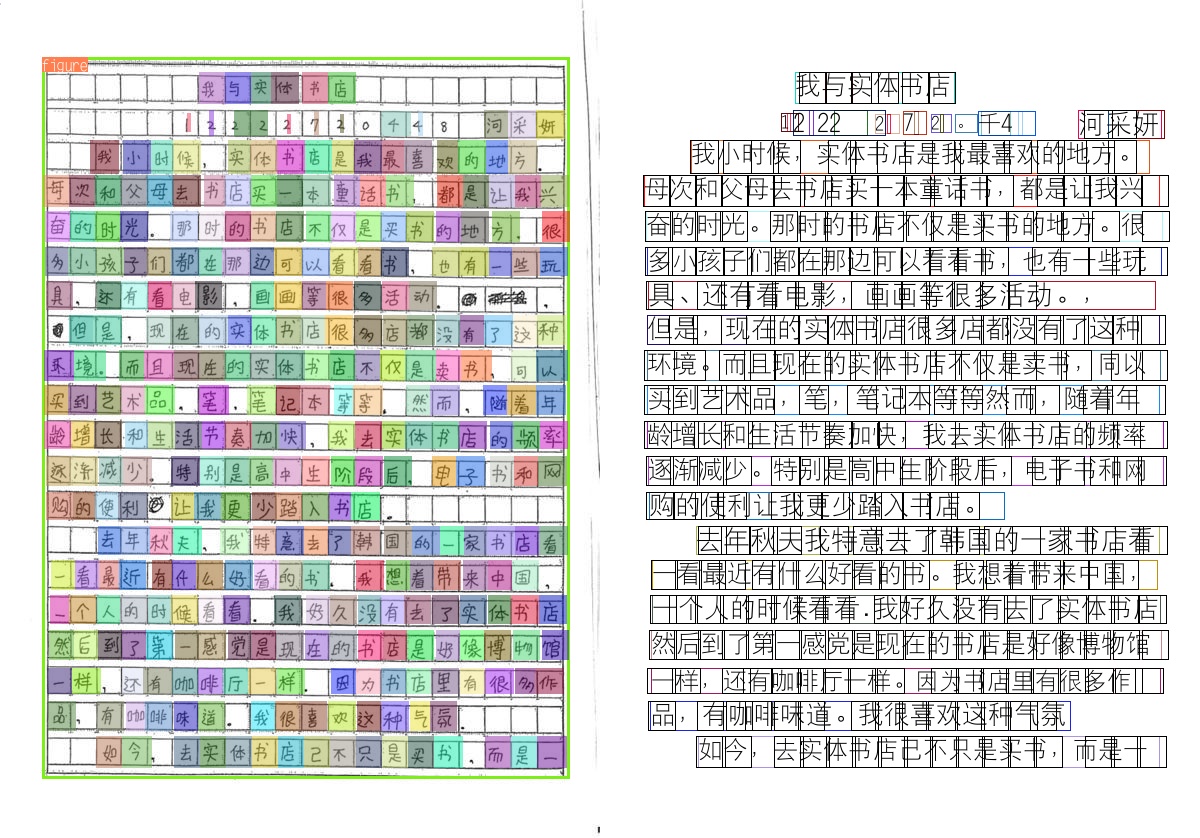 figure
我与实体书店
12222720448 河采妍
我小时候，实体书店是我最喜欢的地方。
每次和父母去书店买一本童话书，都是让我兴
奋的时光。那时的书店不仅是买书的地方。很
多小孩子们都在那边可以看看书，也有一些玩
具，还有看电影，画画等很多活动。，
但是，现在的实体书店很多店都没有了这种
环境。而且现在的实体书店不仅是卖书，可以
买到艺术品，笔，笔记本等等。然而，随着年
龄增长和生活节奏加快，我去实体书店的频率
逐渐减少。特别是高中生阶段后，电子书和网
购的便利让我更少踏入书店。
去年秋天，我特意去了韩国的一家书店看
一看最近有什么好看的书。我想着带来中国，
一个人的时候看看。我好久没有去了实体书店
然后到了第一感觉是现在的书店是好像博物馆
一样，还有咖啡厅一样。因为书店里有很多作
品，有咖啡味道。我很喜欢这种气氛。
如今，去实体书店已不只是买书，而是一
我与实体书店
12 22 2 7 2 。千4 河采妍
我小时候，实体书店是我最喜欢的地方。
母次和父母去书店买一本童话书，都是让我兴
奋的时光。那时的书店不仅是买书的地方。很
多小孩子们都在那边可以看看书，也有一些玩
具、还有看电影，画画等很多活动。，
但是，现在的实体书店很多店都没有了这种
环境。而且现在的实体书店不仅是卖书，同以
买到艺术品，笔，笔记本等等然而，随着年
龄增长和生活节奏加快，我去实体书店的频率
逐渐减少。特别是高中生阶段后，电子书和网
购的便利让我更少踏入书店。
去年秋天我特意去了韩国的一家书店看
一看最近有什么好看的书。我想着带来中国，
十个人的时候看看.我好久没有去了实体书店
然后到了第一感党是现在的书店是好像博物馆
一样，还有咖啡厅一样。因为书店里有很多作
品，有咖啡味道。我很喜欢这种气氛
如今，去实体书店已不只是买书，而是十